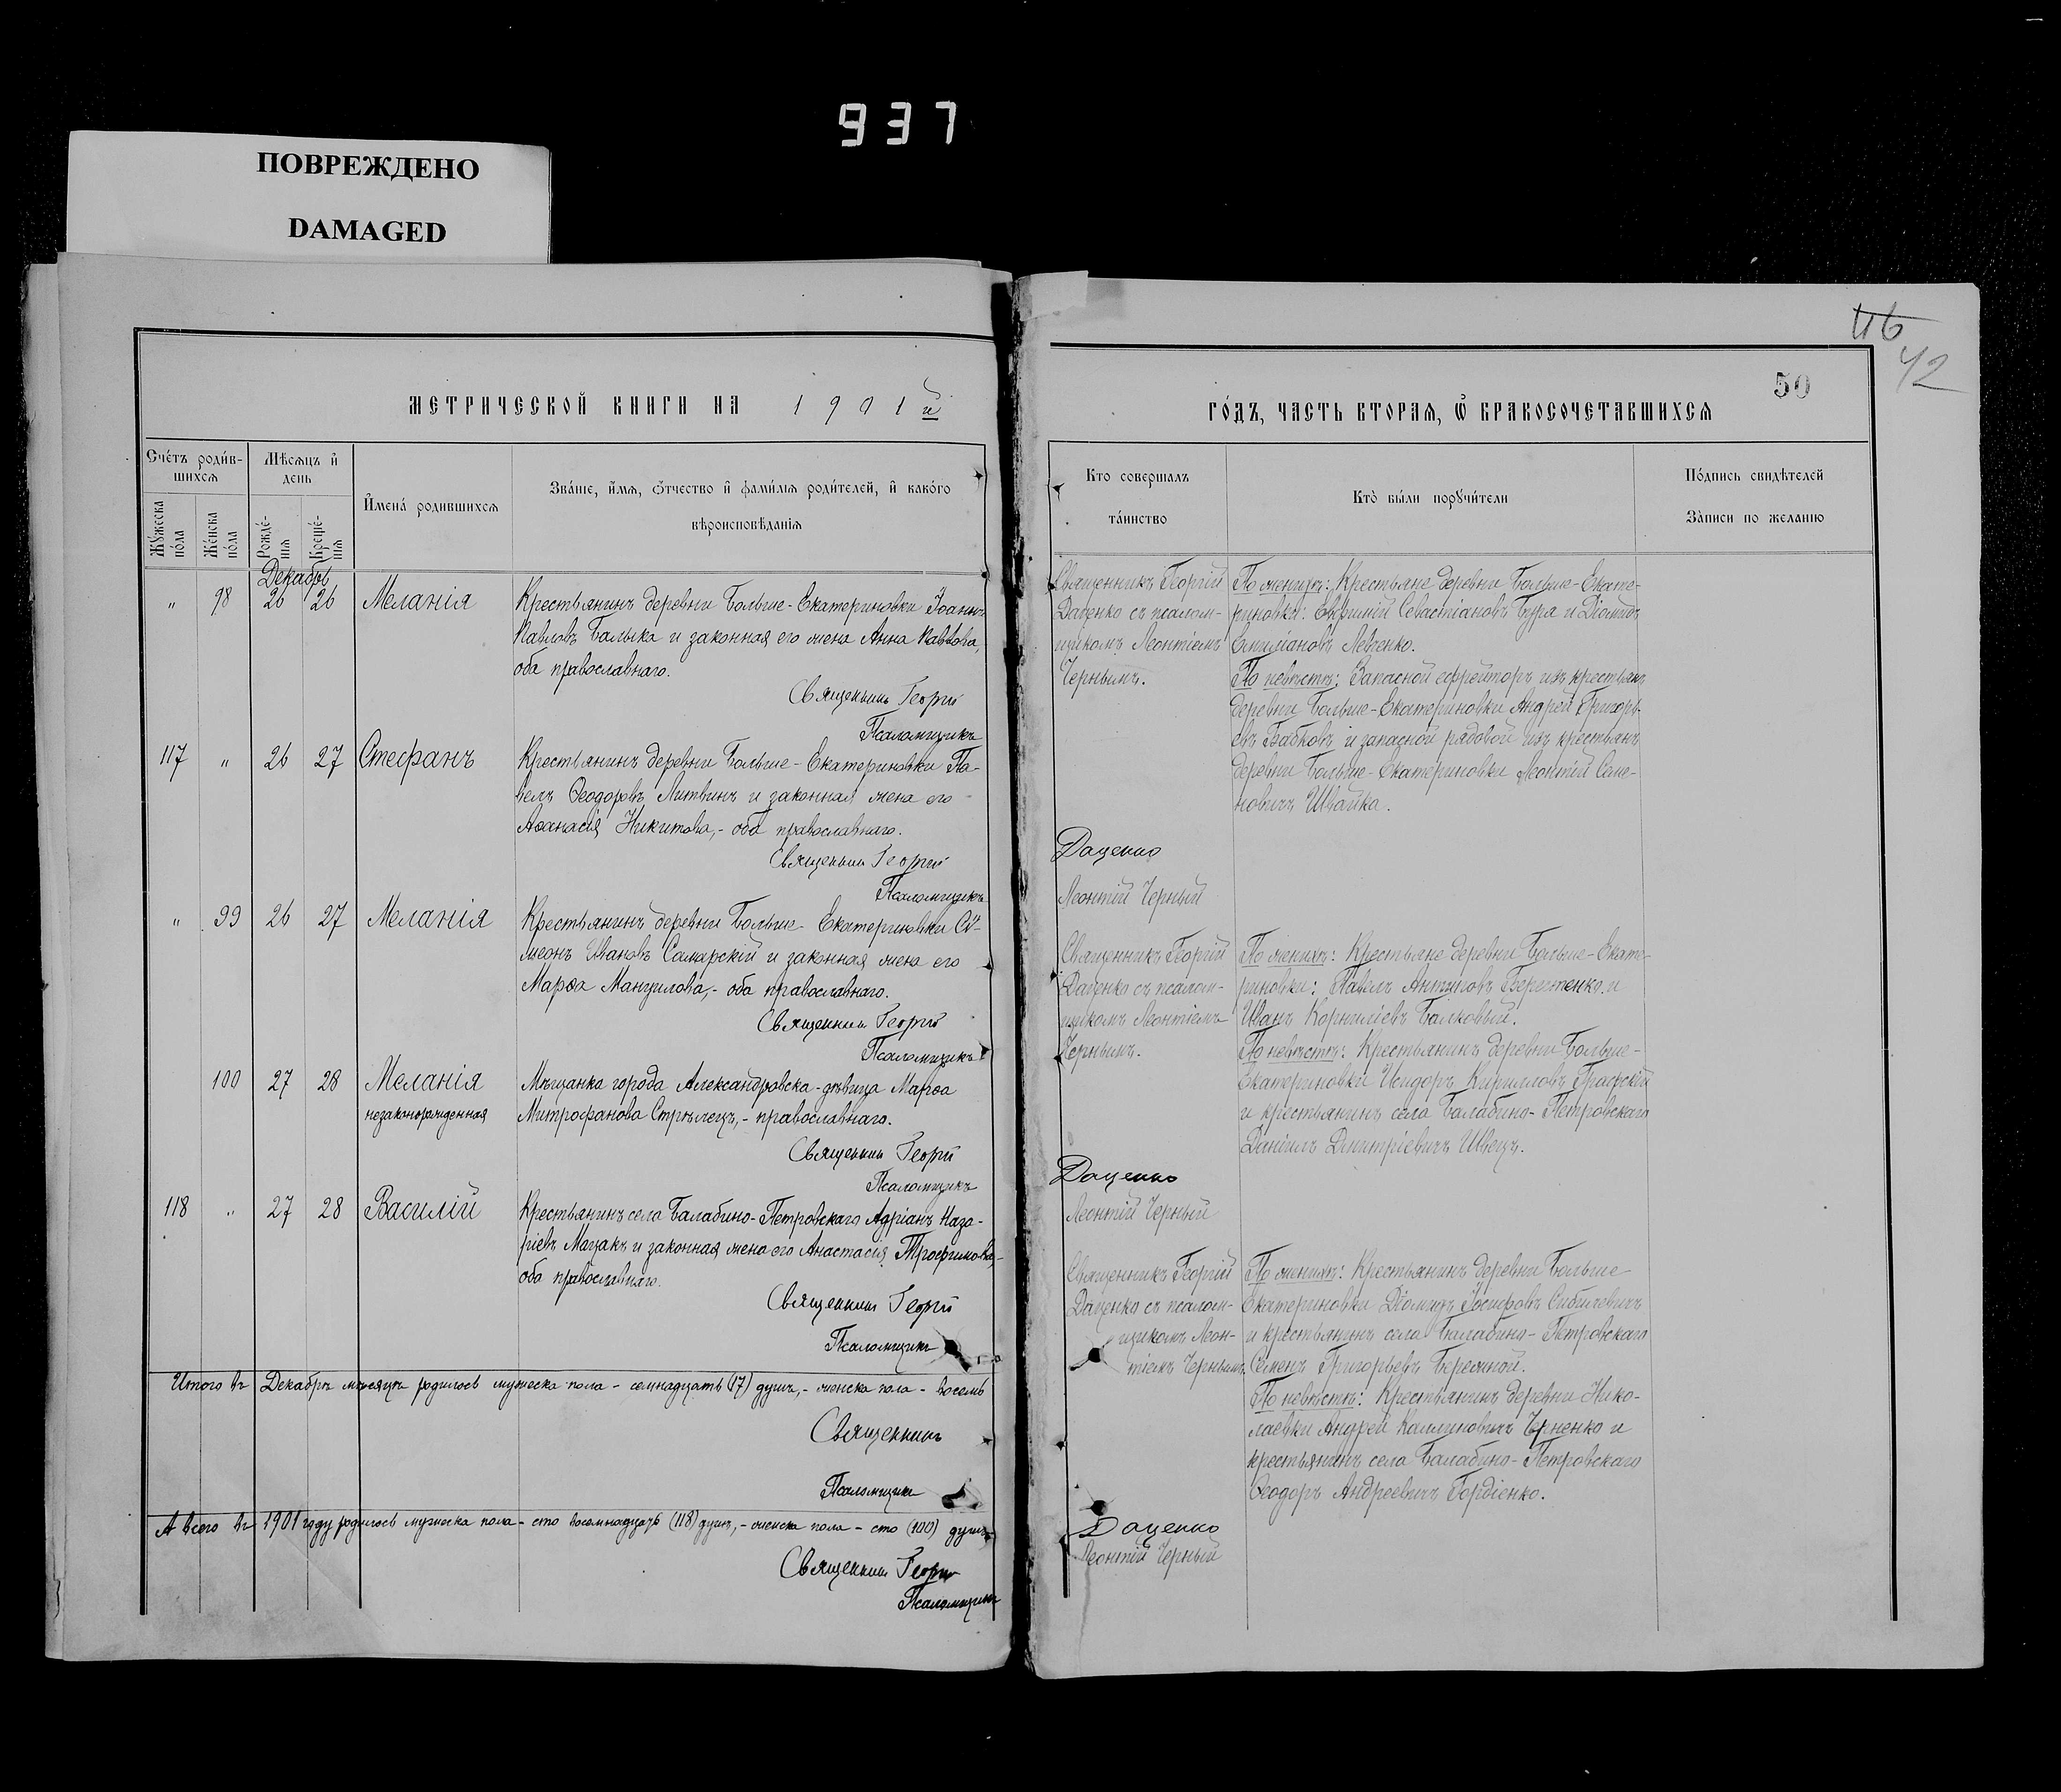 937
ПОВРЕЖДЕНО
DAMAGED
МЕТРИЧЕСКОЙ КНИГИ НА 1901 й
Счетъ родив-
шихся
Мѣсяцъ и
день
Имена родившихся
Званіе, имя, отчество и фамилія родителей, и какого
вѣроисповѣданія
Мужеска
пола
Женска
пола
Рожде-
нія
Креще-
нія
Декабрь
" 98 26 26 Меланія
Крестьянинъ деревни Больше-Екатериновки Іоаннъ
Павловъ Балыка и законная его жена Анна Павлова,
оба православнаго.
Священникъ Георгій
Псаломщикъ
117 " 26 27 Стефанъ
Крестьянинъ деревни Больше-Екатериновки Па-
велъ Ѳеодоровъ Литвинъ и законная жена его
Аѳанасія Никитова,- оба православнаго.
Священникъ Георгій
Псаломщикъ
" 99 26 27 Меланія
Крестьянинъ деревни Больше-Екатериновки Си-
меонъ Ивановъ Самарскій и законная жена его
Марѳа Мануилова,- оба православнаго.
Священникъ Георгій
Псаломщикъ
100 27 28 Меланія
незаконорожденная
Мѣщанка города Александровска-дѣвица Марѳа
Митрофанова Стрѣлецъ,- православнаго.
Священникъ Георгій
Псаломщикъ
118 " 27 28 Василій
Крестьянинъ села Балабино-Петровскаго Адріанъ Наза-
ріевъ Мацакъ и законная жена его Анастасія Трофимова,-
оба православнаго.
Священникъ Георгій
Псаломщикъ
Итого въ Декабрѣ мѣсяцѣ родилось мужеска пола - семнадцать (17) душъ,- женска пола - восемь
Священникъ
Псаломщикъ
А всего въ 1901 году родилось мужеска пола - сто восемнадцать (118) душъ,- женска пола - сто (100) душъ.
Священникъ Георгій
Псаломщикъ
42
50
ГОДЪ, ЧАСТЬ ВТОРАЯ, Ѿ БРАКОСОЧЕТАВШИХСЯ
Кто совершалъ
таинство
Кто были поручители
Подпись свидѣтелей
Записи по желанію
Священникъ Георгій
Даценко съ псалом-
щикомъ Леонтіемъ
Чернымъ.
По женихѣ: Крестьяне деревни Больше-Екате-
риновки: Евфимій Севастіановъ Бура и Діомидъ
Емиліановъ Левченко.
По невѣстѣ: Запасной ефрейторъ изъ крестьянъ
деревни Больше-Екатериновки Андрей Григорь-
евъ Бабковъ и запасной рядовой изъ крестьянъ
деревни Больше-Екатериновки Леонтій Семе-
новичъ Швайка.
Даценко
Леонтій Черный
Священникъ Георгій
Даценко съ псалом-
щикомъ Леонтіемъ
Чернымъ.
По женихѣ: Крестьяне деревни Больше-Екате-
риновки: Павелъ Антиповъ и
Иванъ Корниліевъ Балковый.
По невѣстѣ: Крестьянинъ деревни Больше-
Екатериновки Исидоръ Кирилловъ Графскій
и крестьянинъ села Балабино-Петровскаго
Даніилъ Дмитріевичъ Швецъ.
Даценко
Леонтій Черный
Священникъ Георгій
Даценко съ псалом-
щикомъ Леон-
тіемъ Чернымъ.
По женихѣ: Крестьянинъ деревни Больше-
Екатериновки Діомидъ Іосифовъ
и крестьянинъ села Балабино-Петровскаго
Семенъ Григорьевъ Бережной.
По невѣстѣ: Крестьянинъ деревни Нико-
лаевки Андрей Каллиновичъ Черненко и
крестьянинъ села Балабино-Петровскаго
Ѳеодоръ Андреевичъ Гордіенко.
Даценко
Леонтій Черный